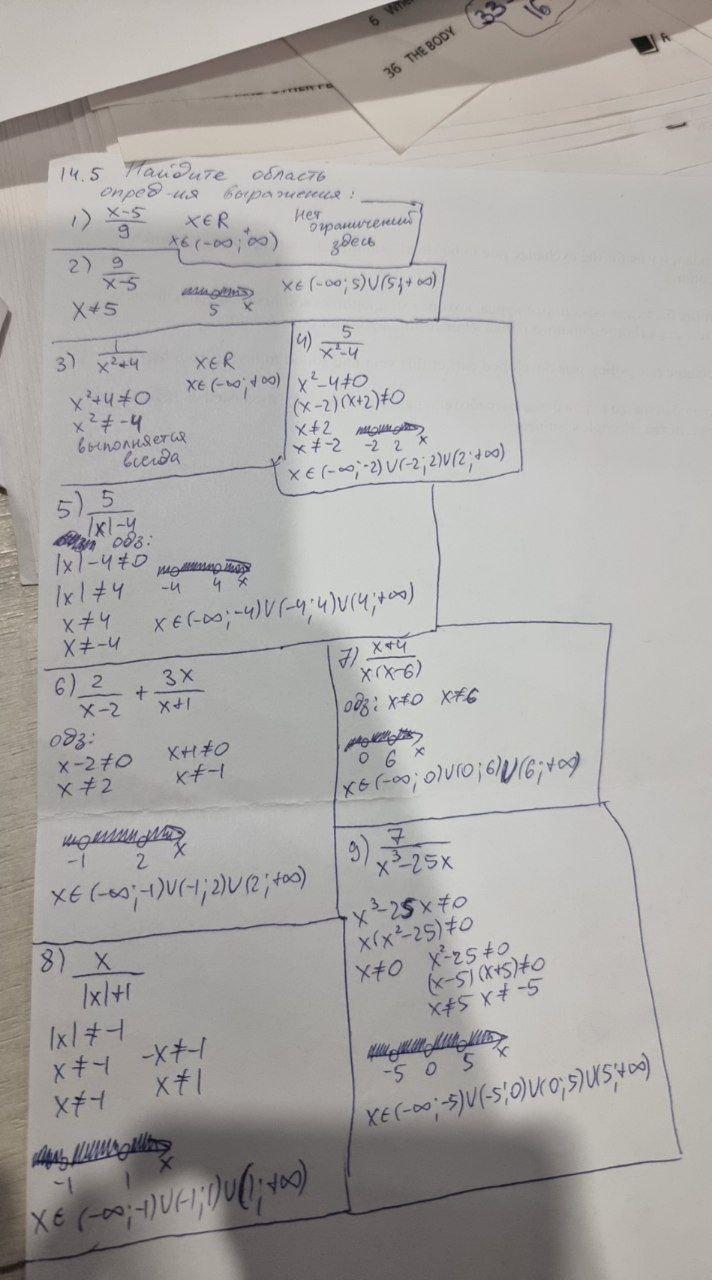 6
36 THE BODY
33
16
14.5 Найдите область
опред-ия выражения:
1) x-5/9 x∈R
x∈(-∞;+∞)
Нет
ограничений
здесь
2) 9/x-5
x≠5
5 x
x∈(-∞;5)∪(5;+∞)
3) 1/x²+4 x∈R
x∈(-∞;+∞)
x²+4≠0
x²≠-4
выполняется
всегда
4) 5/x²-4
x²-4≠0
(x-2)(x+2)≠0
x≠2
x≠-2
-2 2 x
x∈(-∞;-2)∪(-2;2)∪(2;+∞)
5) 5/|x|-4
одз:
|x|-4≠0
|x|≠4
-4 4 x
x≠4
x≠-4
x∈(-∞;-4)∪(-4;4)∪(4;+∞)
6) 2/x-2 + 3x/x+1
одз:
x-2≠0 x+1≠0
x≠2 x≠-1
-1 2 x
x∈(-∞;-1)∪(-1;2)∪(2;+∞)
7) x+4/x(x-6)
одз: x≠0 x≠6
0 6 x
x∈(-∞;0)∪(0;6)∪(6;+∞)
8) x/|x|+1
|x|≠-1
x≠-1 -x≠-1
x≠-1 x≠1
-1 1 x
x∈(-∞;-1)∪(-1;1)∪(1;+∞)
9) 7/x³-25x
x³-25x≠0
x(x²-25)≠0
x≠0 x²-25≠0
(x-5)(x+5)≠0
x≠5 x≠-5
-5 0 5 x
x∈(-∞;-5)∪(-5;0)∪(0;5)∪(5;+∞)